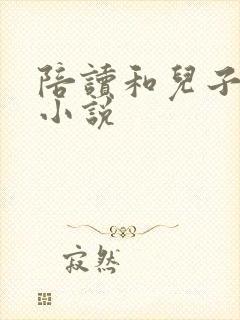 陪讀和兒子
小說
寂然